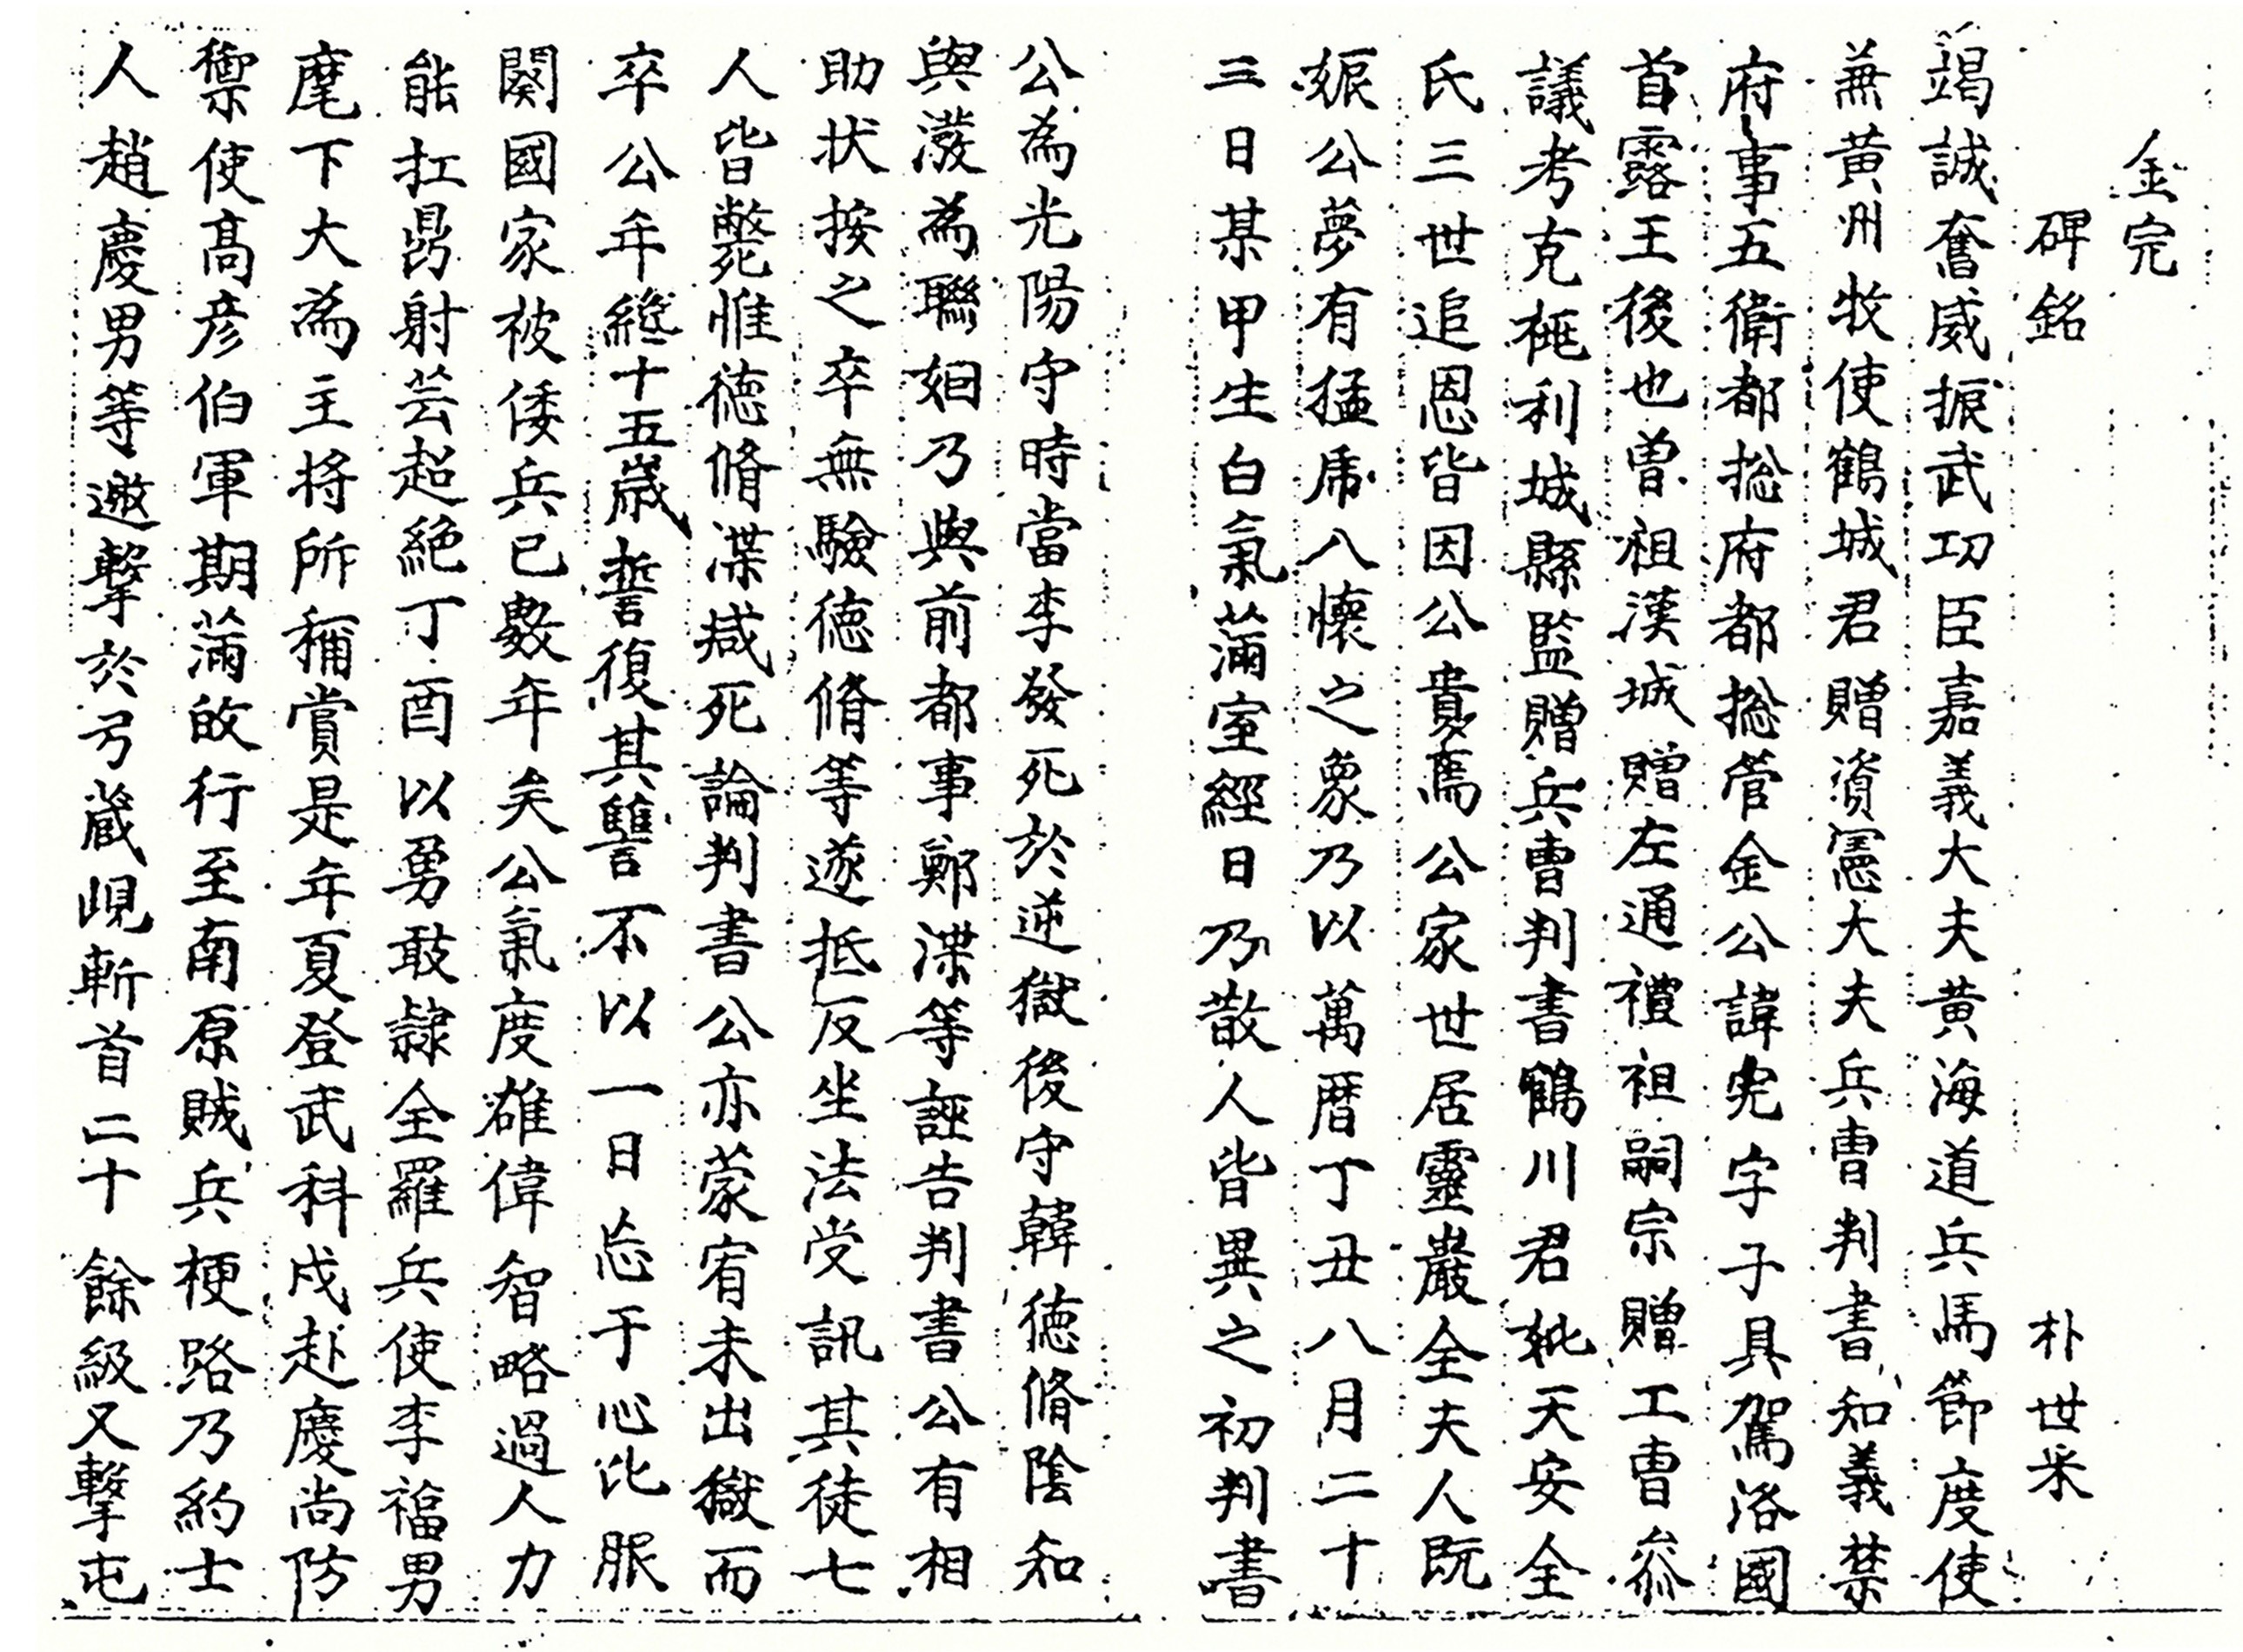 金完
碑銘 朴世采
竭誠奮威振武功臣嘉義大夫黃海道兵馬節度使
兼黃州牧使鶴城君贈資憲大夫兵曹判書知義禁
府事五衛都摠府都摠管金公諱完字子具駕洛國
首露王後也曾祖漢城贈左通禮祖嗣宗贈工曹參
議考克秹利城縣監贈兵曹判書鶴川君妣天安全
氏三世追恩皆因公貴焉公家世居靈巖全夫人既
娠公夢有猛虎入懷之象乃以萬曆丁丑八月二十
三日某甲生白氣滿室經日乃散人皆異之初判書
公為光陽守時當李發死於逆獄後守韓德脩陰知
與潑為聯姻乃與前都事鄭渫等誣告判書公有相
助狀按之卒無驗德脩等遂抵反坐法受訊其徒七
人皆斃惟德脩渫減死論判書公亦蒙宥未出獄而
卒公年纔十五歲誓復其讐不以一日忘于心比服
闋國家被倭兵已數年矣公氣度雄偉智略過人力
能扛鼎射芸超絶丁酉以勇敢隷全羅兵使李福男
麾下大為主將所稱賞是年夏登武科戍赴慶尚防
禦使高彦伯軍期滿啟行至南原賊兵梗路乃約士
人趙慶男等邀擊於弓蔵峴斬首二十餘級又擊屯